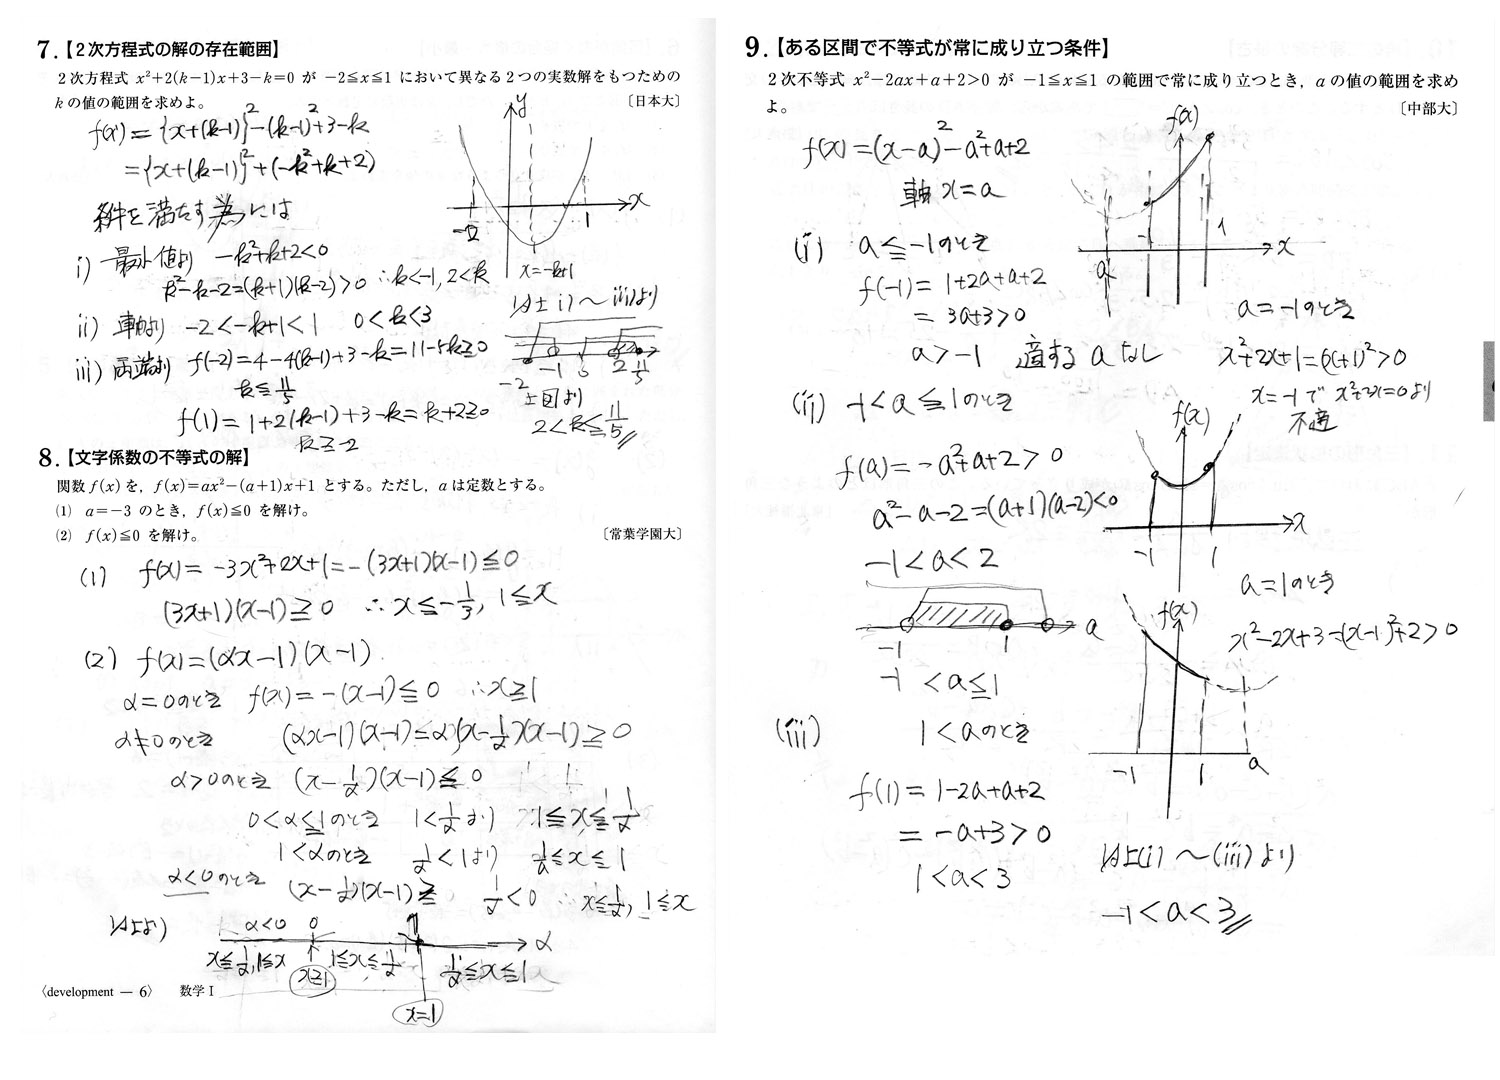 7.【2次方程式の解の存在範囲】
2次方程式 x²+2(k−1)x+3−k=0 が −2≦x≦1 において異なる2つの実数解をもつための
kの値の範囲を求めよ。 〔日本大〕
f(x)={x+(k-1)}²-(k-1)²+3-k
={x+(k-1)}²+(-k²+k+2)
条件を満たす為には
i) 最小値より -k²+k+2<0
k²-k-2=(k+1)(k-2)>0 ∴k<-1, 2<k
ii) 軸より -2<-k+1<1 0<k<3
iii) 両端より f(-2)=4-4(k-1)+3-k=11-5k≧0
k≦11/5
f(1)=1+2(k-1)+3-k=k+2≧0
k≧-2
y
x
-2 1
x=-k+1
以上 i)～iii)より
-2 -1 0 2 11/5
上図より
2<k≦11/5
8.【文字係数の不等式の解】
関数 f(x) を, f(x)=ax²−(a+1)x+1 とする。ただし, a は定数とする。
(1) a=−3 のとき, f(x)≦0 を解け。
(2) f(x)≦0 を解け。 〔常葉学園大〕
(1) f(x)=-3x²+2x+1=-(3x+1)(x-1)≦0
(3x+1)(x-1)≧0 ∴x≦-1/3, 1≦x
(2) f(x)=(αx-1)(x-1)
α=0のとき f(x)=-(x-1)≦0 ∴x≧1
α≠0のとき (αx-1)(x-1)≦α(x-1/α)(x-1)≧0
α>0のとき (x-1/α)(x-1)≦0
0<α≦1のとき 1<1/αより 1≦x≦1/α
1<αのとき 1/α<1より 1/α≦x≦1
α<0のとき (x-1/α)(x-1)≧ 1/α<0 ∴x≦1/α, 1≦x
以上より
α<0 0 1 α
x≦1/α, 1≦x 1≦x≦1/α 1/α≦x≦1
x≧1
x=1
〈development − 6〉 数学Ⅰ
9.【ある区間で不等式が常に成り立つ条件】
2次不等式 x²−2ax+a+2>0 が −1≦x≦1 の範囲で常に成り立つとき, a の値の範囲を求め
よ。 〔中部大〕
f(x)=(x-a)²-a²+a+2
軸 x=a
(i) a≦-1のとき
f(-1)=1+2a+a+2
=3a+3>0
a>-1 適する a なし
f(x)
a -1 1 x
a=-1のとき
x²+2x+1=(x+1)²>0
x=-1で x²+2x=0より
不適
(ii) -1<a≦1のとき
f(a)=-a²+a+2>0
a²-a-2=(a+1)(a-2)<0
-1<a<2
-1 1 a
-1<a≦1
f(x)
-1 1 x
a=1のとき
x²-2x+3=(x-1)²+2>0
(iii) 1<aのとき
f(1)=1-2a+a+2
=-a+3>0
1<a<3
f(x)
-1 1 a
以上(i)～(iii)より
-1<a<3